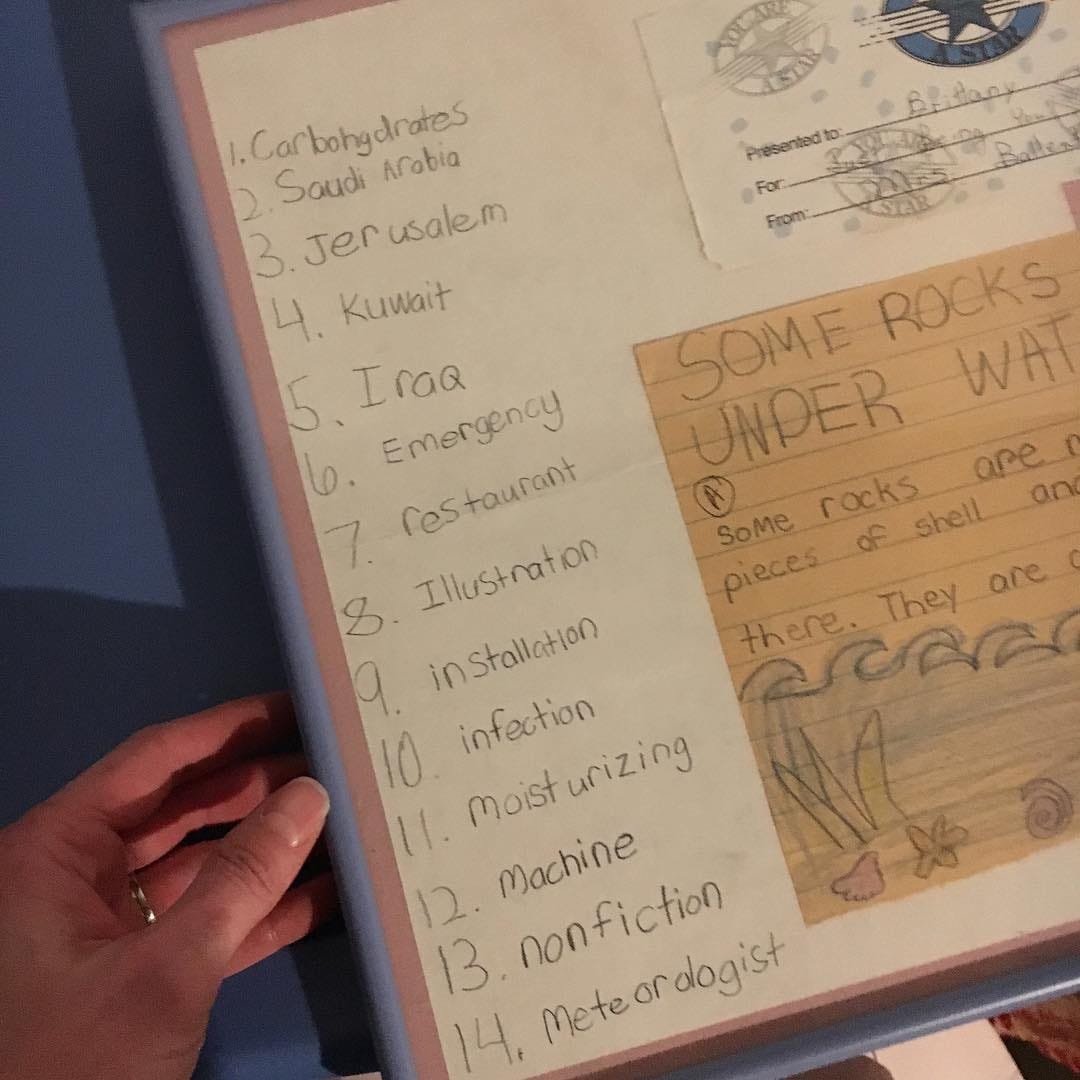 1. Carbohydrates
2. Saudi Arabia
3. Jerusalem
4. Kuwait
5. Iraq
6. Emergency
7. restaurant
8. Illustration
9. installation
10. infection
11. moisturizing
12. Machine
13. nonfiction
14. Meteorologist
YOU ARE
A STAR
A STAR
Presented to: Brittany
For: Being Your
From:
STAR
SOME ROCKS
UNDER WAT
A
Some rocks are
pieces of shell and
there. They are